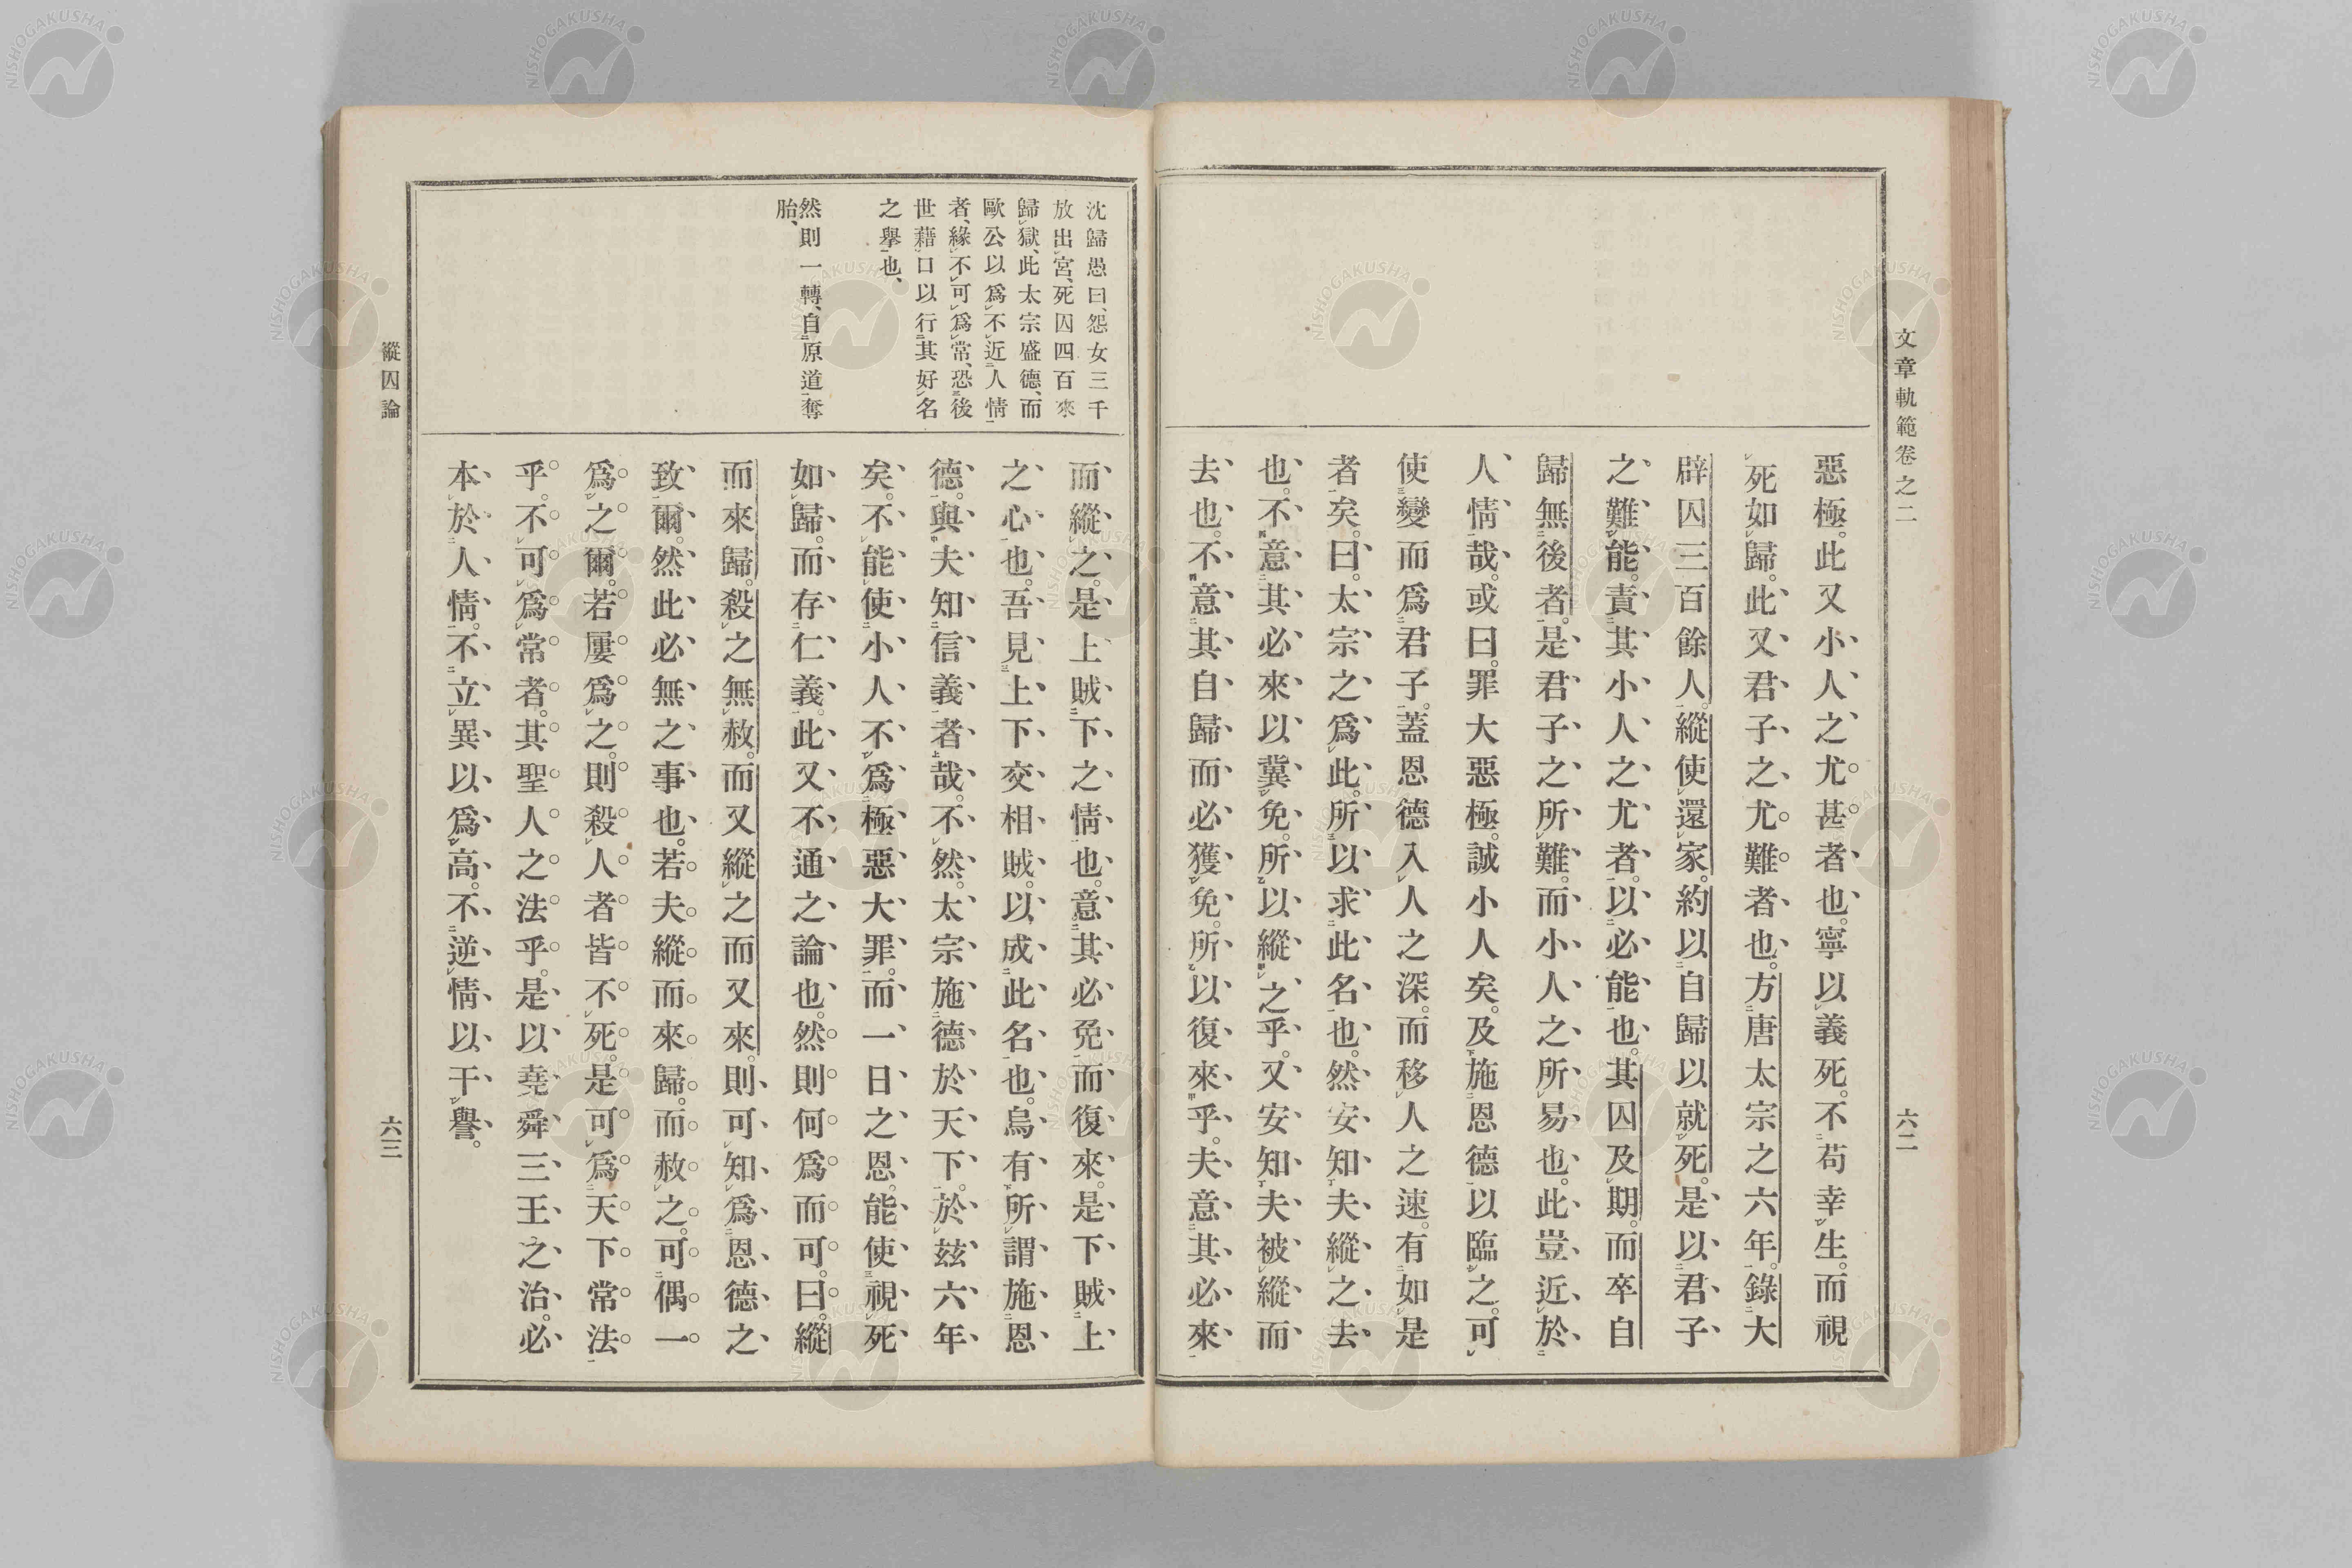 文章軌範卷之二
六二
惡極。此又小人之尤甚者也。寧以義死。不苟幸生。而視
死如歸。此又君子之尤難者也。方唐太宗之六年。錄大
辟囚三百餘人。縱使還家。約以自歸以就死。是以君子
之難能。責其小人之尤者。以必能也。其囚及期。而卒自
歸無後者。是君子之所難。而小人之所易也。此豈近於
人情哉。或曰。罪大惡極。誠小人矣。及施恩德以臨之。可
使變而爲君子。蓋恩德入人之深。而移人之速。有如是
者矣。曰。太宗之爲此。所以求此名也。然安知夫縱之去
也。不意其必來以冀免。所以縱之乎。又安知夫被縱而
去也。不意其自歸而必獲免。所以復來乎。夫意其必來
沈歸愚曰、怨女三千
放出宮、死囚四百來
歸獄、此太宗盛德、而
歐公以爲不近人情
者、緣不可爲常、恐後
世藉口以行其好名
之擧也、
然則一轉、自原道奪
胎、
而縱之。是上賊下之情也。意其必免而復來。是下賊上
之心也。吾見上下交相賊。以成此名也。烏有所謂施恩
德。與夫知信義者哉。不然。太宗施德於天下。於玆六年
矣。不能使小人不爲極惡大罪。而一日之恩。能使視死
如歸。而存仁義。此又不通之論也。然則何爲而可。曰。縱
而來歸。殺之無赦。而又縱之而又來。則可知爲恩德之
致爾。然此必無之事也。若夫縱而來歸。而赦之。可偶一
爲之爾。若屢爲之。則殺人者皆不死。是可爲天下常法
乎。不可爲常者。其聖人之法乎。是以堯舜三王之治。必
本於人情。不立異以爲高。不逆情以干譽。
縱囚論
六三
NISHOGAKUSHA